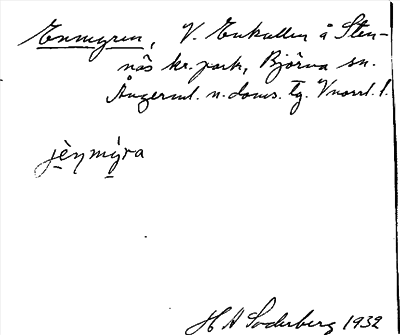 Enmyren, V. Enkullen å Sten-
näs kr.park, Björna sn.
Ångerml. n. doms. tg. Vnorrl. l.
jèŋmýra
H A Söderberg 1932